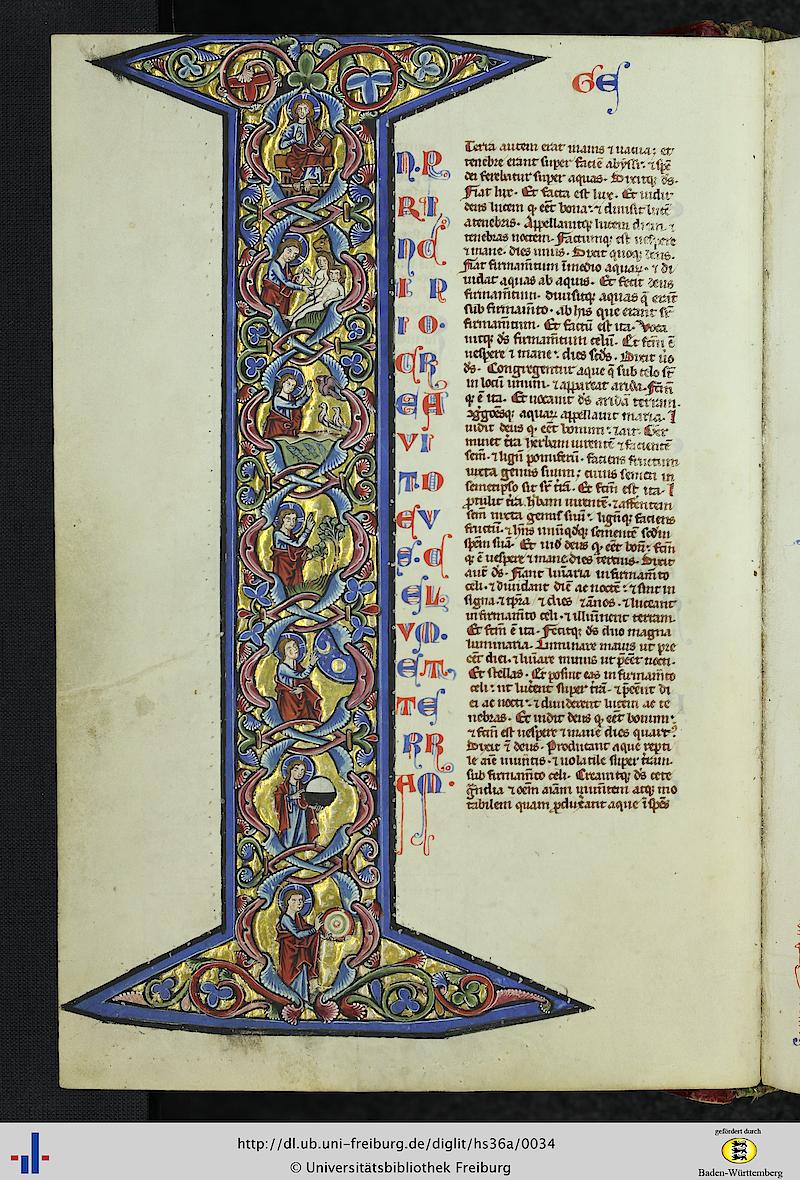 GE
N.R
RI.
N C
I P
I O.
CR
EA
VI
T.D
EV
S. C
EL.
VM.
ET.
TE
RR
AM.
Terra autem erat inanis ⁊ uacua: et
tenebre erant super faciē abyssi: ⁊ spē
dei ferebatur super aquas. Dixitq; ds̄.
Fiat lux. Et facta est lux. Et uidit
deus lucem q. eēt bona: ⁊ diuisit lucē
a tenebris. Appellauitq; lucem diem ⁊
tenebras noctem. Factumq; est uespere
⁊ mane. dies unus. Dixit quoq; deus.
Fiat firmamētum ī medio aquaꝝ. ⁊ di
uidat aquas ab aquis. Et fecit deus
firmamētum. diuisitq; aquas q̄ erāt
sub firmamēto. ab his que erant sr̄
firmamētum. Et factū est ita. Voca
uitq; ds̄ firmamētum celū. Et fcm̄ ē
uespere ⁊ mane. dies scds̄. Dixit uo
ds̄. Congregentur aque q̄ sub celo st̄
in locū unum. ⁊ appareat arida. Fcm̄
q; ē ita. Et uocauit ds̄ aridā terram.
ↄg̅gōesq; aquaꝝ appellauit maria. ⁊
uidit deus q. eēt bonum. ⁊ ait. Ger
minet tr̄a herbam uirentē ⁊ facientē
sem̄. ⁊ lignū pomiferū. faciens fructum
iuxta genus suum: cuius semen in
semetipso sit sr̄ tr̄a. Et fcm̄ est ita. ⁊
ꝓtulit tr̄a h̄bam uirentē. ⁊ afferentem
sem̄ iuxta genus suū. lignūq; faciens
fructū. ⁊ hn̄s unūqdq; sementē scdm̄
spēm suā. Et uid̄ deus q. eēt bonū. fcm̄
q; ē uespere ⁊ mane. dies tercius. Dixit
aut̄ ds̄. Fiant luīaria in firmamēto
celi. ⁊ diuidant diē ac noctē. ⁊ sint in
signa. ⁊ tp̄ra. ⁊ dies ⁊ ānos. ⁊ luceant
in firmamēto celi. ⁊ illumīent terram.
Et fcm̄ ē ita. Fecitq; ds̄ duo magna
luminaria. Luminare maius ut pre
eēt diei. ⁊ luīare minus ut p̄eēt nocti.
Et stellas. Et posuit eas in firmamēto
celi. ut lucerent super tr̄ā. ⁊ p̄eēnt di
ei ac nocti. ⁊ diuiderent lucem ac te
nebras. Et uidit deus q. eēt bonum.
⁊ fcm̄ est uespere ⁊ mane dies quart9
Dixit ē deus. Producant aque repti
le aīe uiuētis. ⁊ uolatile super tr̄am.
sub firmamēto celi. Creauitq; ds̄ cete
g̃ndia ⁊ oēm aīam uiuētem atq; mo
tabilem quam ꝓduxerant aque ī spēs
http://dl.ub.uni-freiburg.de/diglit/hs36a/0034
© Universitätsbibliothek Freiburg
gefördert durch
Baden-Württemberg